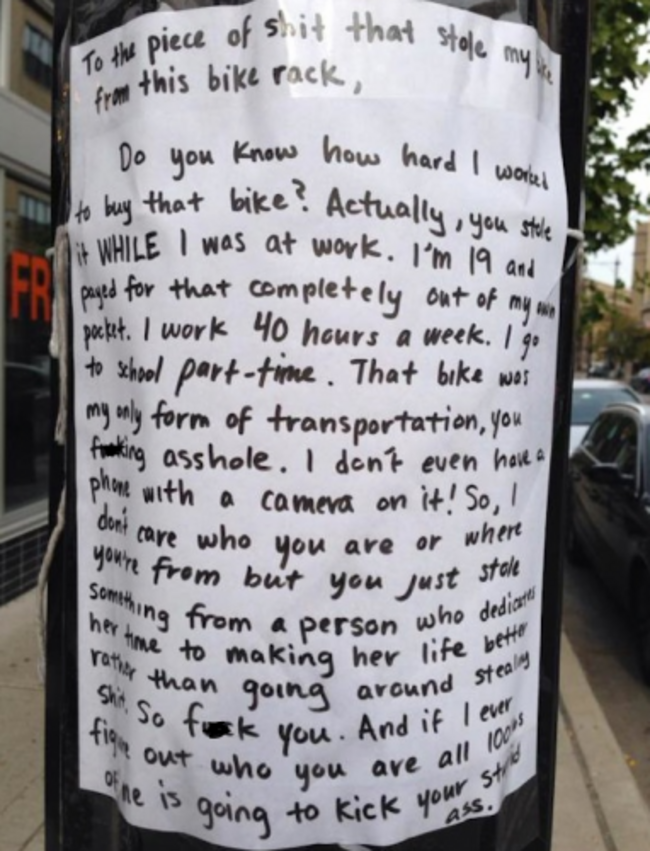 To the piece of shit that stole my bike
from this bike rack,
Do you know how hard I worked
to buy that bike? Actually, you stole
it WHILE I was at work. I'm 19 and
payed for that completely out of my own
pocket. I work 40 hours a week. I go
to school part-time. That bike was
my only form of transportation, you
fucking asshole. I don't even have a
phone with a camera on it! So, I
don't care who you are or where
you're from but you just stole
something from a person who dedicates
her time to making her life better
rather than going around stealing
shit. So fuck you. And if I ever
figure out who you are all 100lbs
of me is going to kick your stupid
ass.
FR